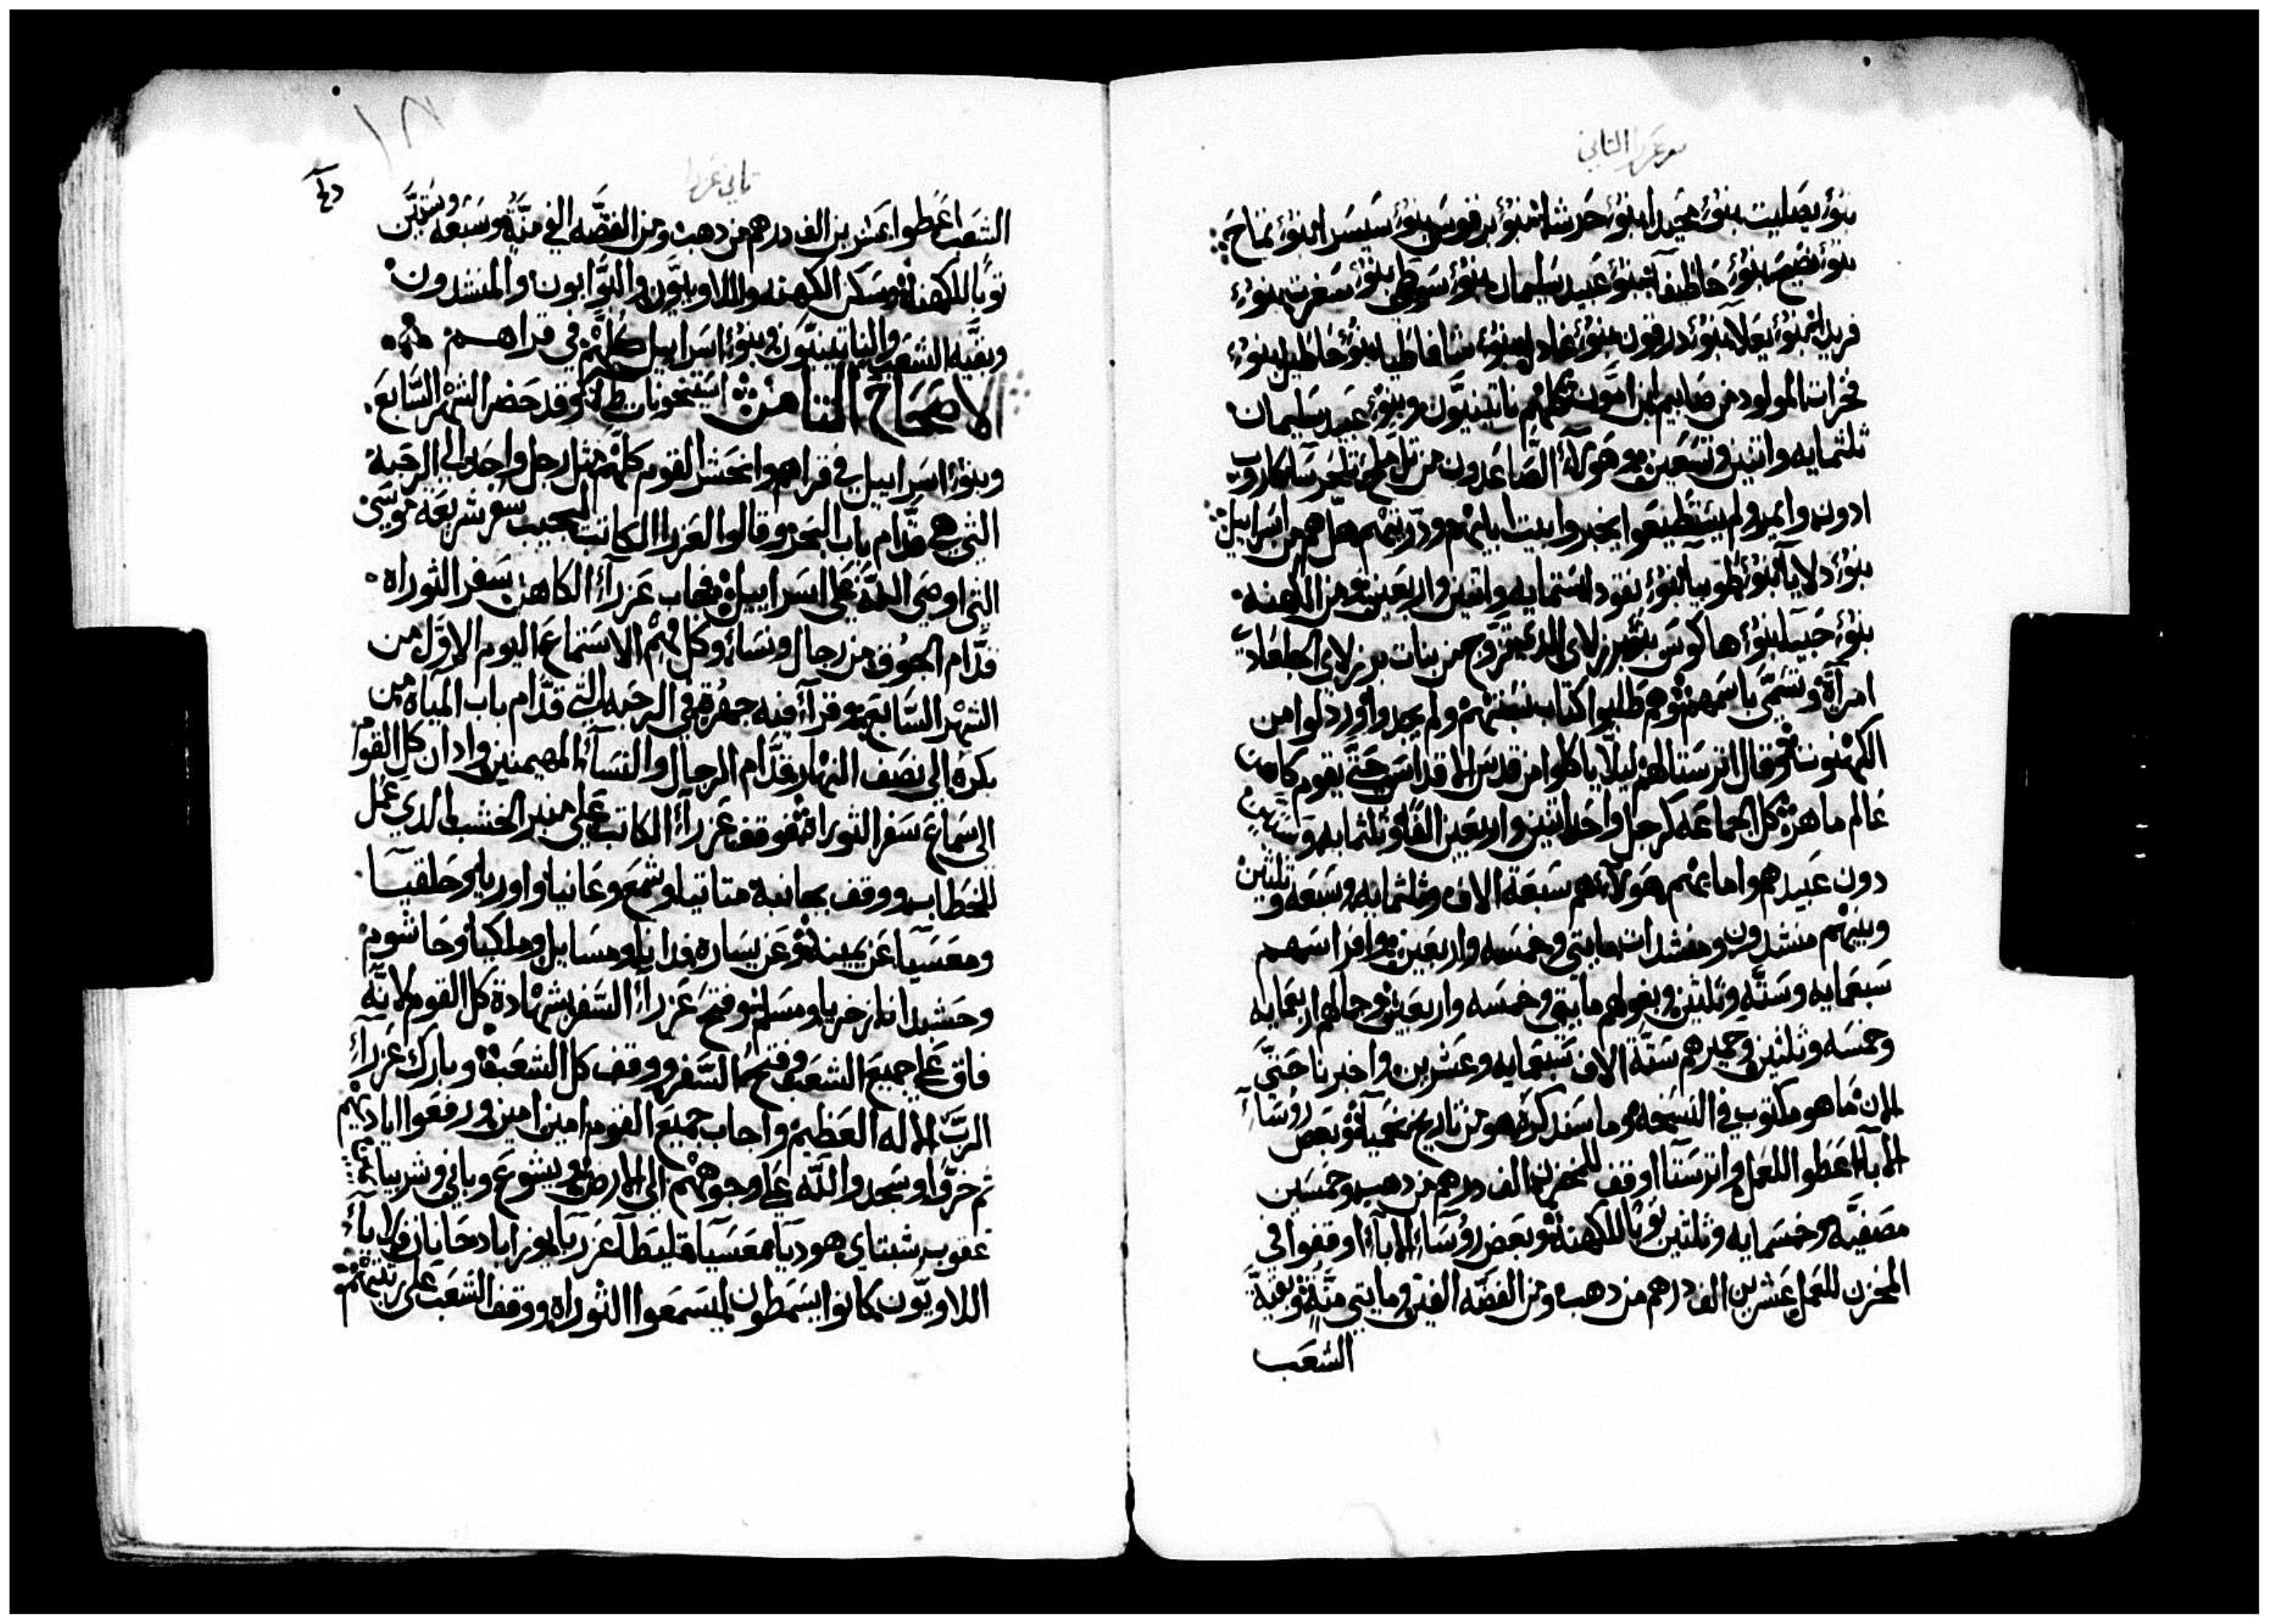 سفر عزرا الثاني
بنؤُ بصليت بنؤُ محيدا بنؤُ حرشا بنؤُ برقوس بنؤُ سيسرا بنؤُ تماح
بنؤُ نصيح بنؤُ حاظيفا بنؤُ عبيد سليمان بنؤُ سوطي بنؤُ سفرت بنؤُ
فريدا بنؤُ يعلا بنؤُ درقون بنؤُ غادل بنؤُ شافاطيا بنؤُ حاطيل بنؤُ
فخرات المولود من صابيم ابن امون كلهم ناتينيون وبنؤُ عبيد سليمان
ثلثمايه واتنين وتسعين وهولآء الصاعدون من تل ملح تلحرسا كاروب
ادون وامير ولم يستطيعوا يخبروا بيت ابايهم ودريتهم هل هم من اسراييل
بنؤُ دلايا بنؤُ طوبيا بنؤُ نقودا ستمايه واتنين واربعين ومن الكهنه
بنؤُ حبيا بنؤُ هاكوس بنؤُ برزلاي الدي تزوج من بنات برزلاي الجلعادي
امرآة وتسمى باسمهم وهم طلبوا كتاب نسبتهم ولم يجدوا وردلوا من
الكهنوت وقال اترستا لهم ليلا ياكلوا من قدس الاقداس حتى يقوم كاهن
عالم ماهر كل الجماعه كرجل واحد اتنين واربعين الفا وثلثمايه وستين
دون عبيدهم واماىهم هولآء هم سبعة الاف وثلثمايه وسبعه وثلثين
وبينهم منشدون ومنشدات مايتي وخمسه واربعين وافراسهم
سبعمايه وسته وثلثين وبغولهم مايتي وخمسه واربعين وجمالهم اربعمايه
وخمسه وثلثين وحميرهم ستة الاف سبعمايه وعشرين واخبرنا حتى
الان ما هو مكتوب في النسخه وما سندكره هو من تاريخ نحميا وبعض روُسآء
الابآء اعطوا للعمل واترستا اوقف للمخزن الف درهم من دهب وخمسين
مصفيه وخمسمايه وثلثين توبا للكهنه وبعض روُسآء الابآء اوقفوا في
المخزن للعمل عشرين الف درهم من دهب ومن الفضه الفين ومايتي منَّه وبقية
الشعب
تاني عزرا
الشعب اعطوا عشرين الف درهم من دهب ومن الفضه الفي منَّه وسبعه وستين
توبا للكهنه وسكن الكهنه واللاويون والبوابون والمنشدون
وبقيه الشعب والناتينيون وبنؤُ اسراييل كلهم في قراهم
الاصحاح الثامن وقد حضر الشهر السابع
وبنؤُ اسراييل في قراهم وانحشر القوم كلهم مثل رجل واحد الي الرحبة
التي هي قدام باب البحر وقالوا لعزرا الكاتب ليجيب سفر شريعة موسى
التي اوصى الله على اسراييل فجاب عزرآء الكاهن سفر الثوراة
قدام الجوق من رجال ونسآء وكل فهم الاستماع اليوم الاول من
الشهر السابع وقرآء فيه جهرة في الرحبه التي قدام باب المياه من
بكره الي نصف النهار قدام الرجال والنسآء المهيمنين وادان كل القوم
الى سماع سفر الثوراة فوقف عزرآء الكاتب على منبر الخشب الدي عمل
للخطاب ووقف بجانبه متاتيا وشمع وعانيا واوريا وحلقيا
ومعسيا عن يمينه وعن يساره فدايا ومسايل وملكيا وحاشوم
وحشبدانا زخريا ومسلم وفتح عزرآء السفر بشهادة كل القوم لانه
فاق على جميع الشعب وفتح السفر ووقف كل الشعب وبارك عزرآء
الربَّ الاله العظيم واجاب جميع القوم امين امين ورفعوا اياديهم
ثم خروا وسجدوا لله على وجوههم الى الارض ويشوع وباني وشربيا
عقوب شبتاي هوديا معسيا قليطا عزريا يوزاباد حانان فلايآء
اللاويون كانوا يسمطون ليسمعوا الثوراة ووقف الشعب على رتبتهم